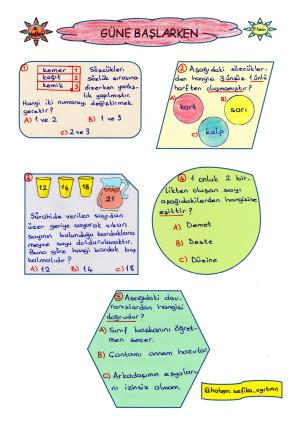 GÜNE BAŞLARKEN
1
kemer 1
katı 2
kemik 3
Sözcükleri
sözlük sırasına
dizerken yanlış-
lık yapılmıştır.
Hangi iki numarayı değiştirmek
gerekir?
A) 1 ve 2
B) 1 ve 3
C) 2 ve 3
2 Aşağıdaki sözcükler-
den hangisi 3 ünsüz 1 ünlü
harften oluşmamıştır?
A)
kart
B)
sarı
C)
kalp
3
12
14
18
21
Sürahide verilen sayıdan
üzer geriye sayarak çıkan
sayının bulunduğu bardaklara
meyve suyu doldurulacaktır.
Buna göre hangi bardak boş
kalmalıdır?
A) 12
B) 14
C) 18
4 1 onluk 2 bir-
likten oluşan sayı
aşağıdakilerden hangisine
eşittir?
A) Demet
B) Deste
C) Düzine
5 Aşağıdaki dav-
ranışlardan hangisi
doğrudur?
A) Sınıf başkanını öğret-
men seçer.
B) Çantamı annem hazırlar.
C) Arkadaşımın eşyaları-
nı izinsiz almam.
@hatem.sefika_ogretmen